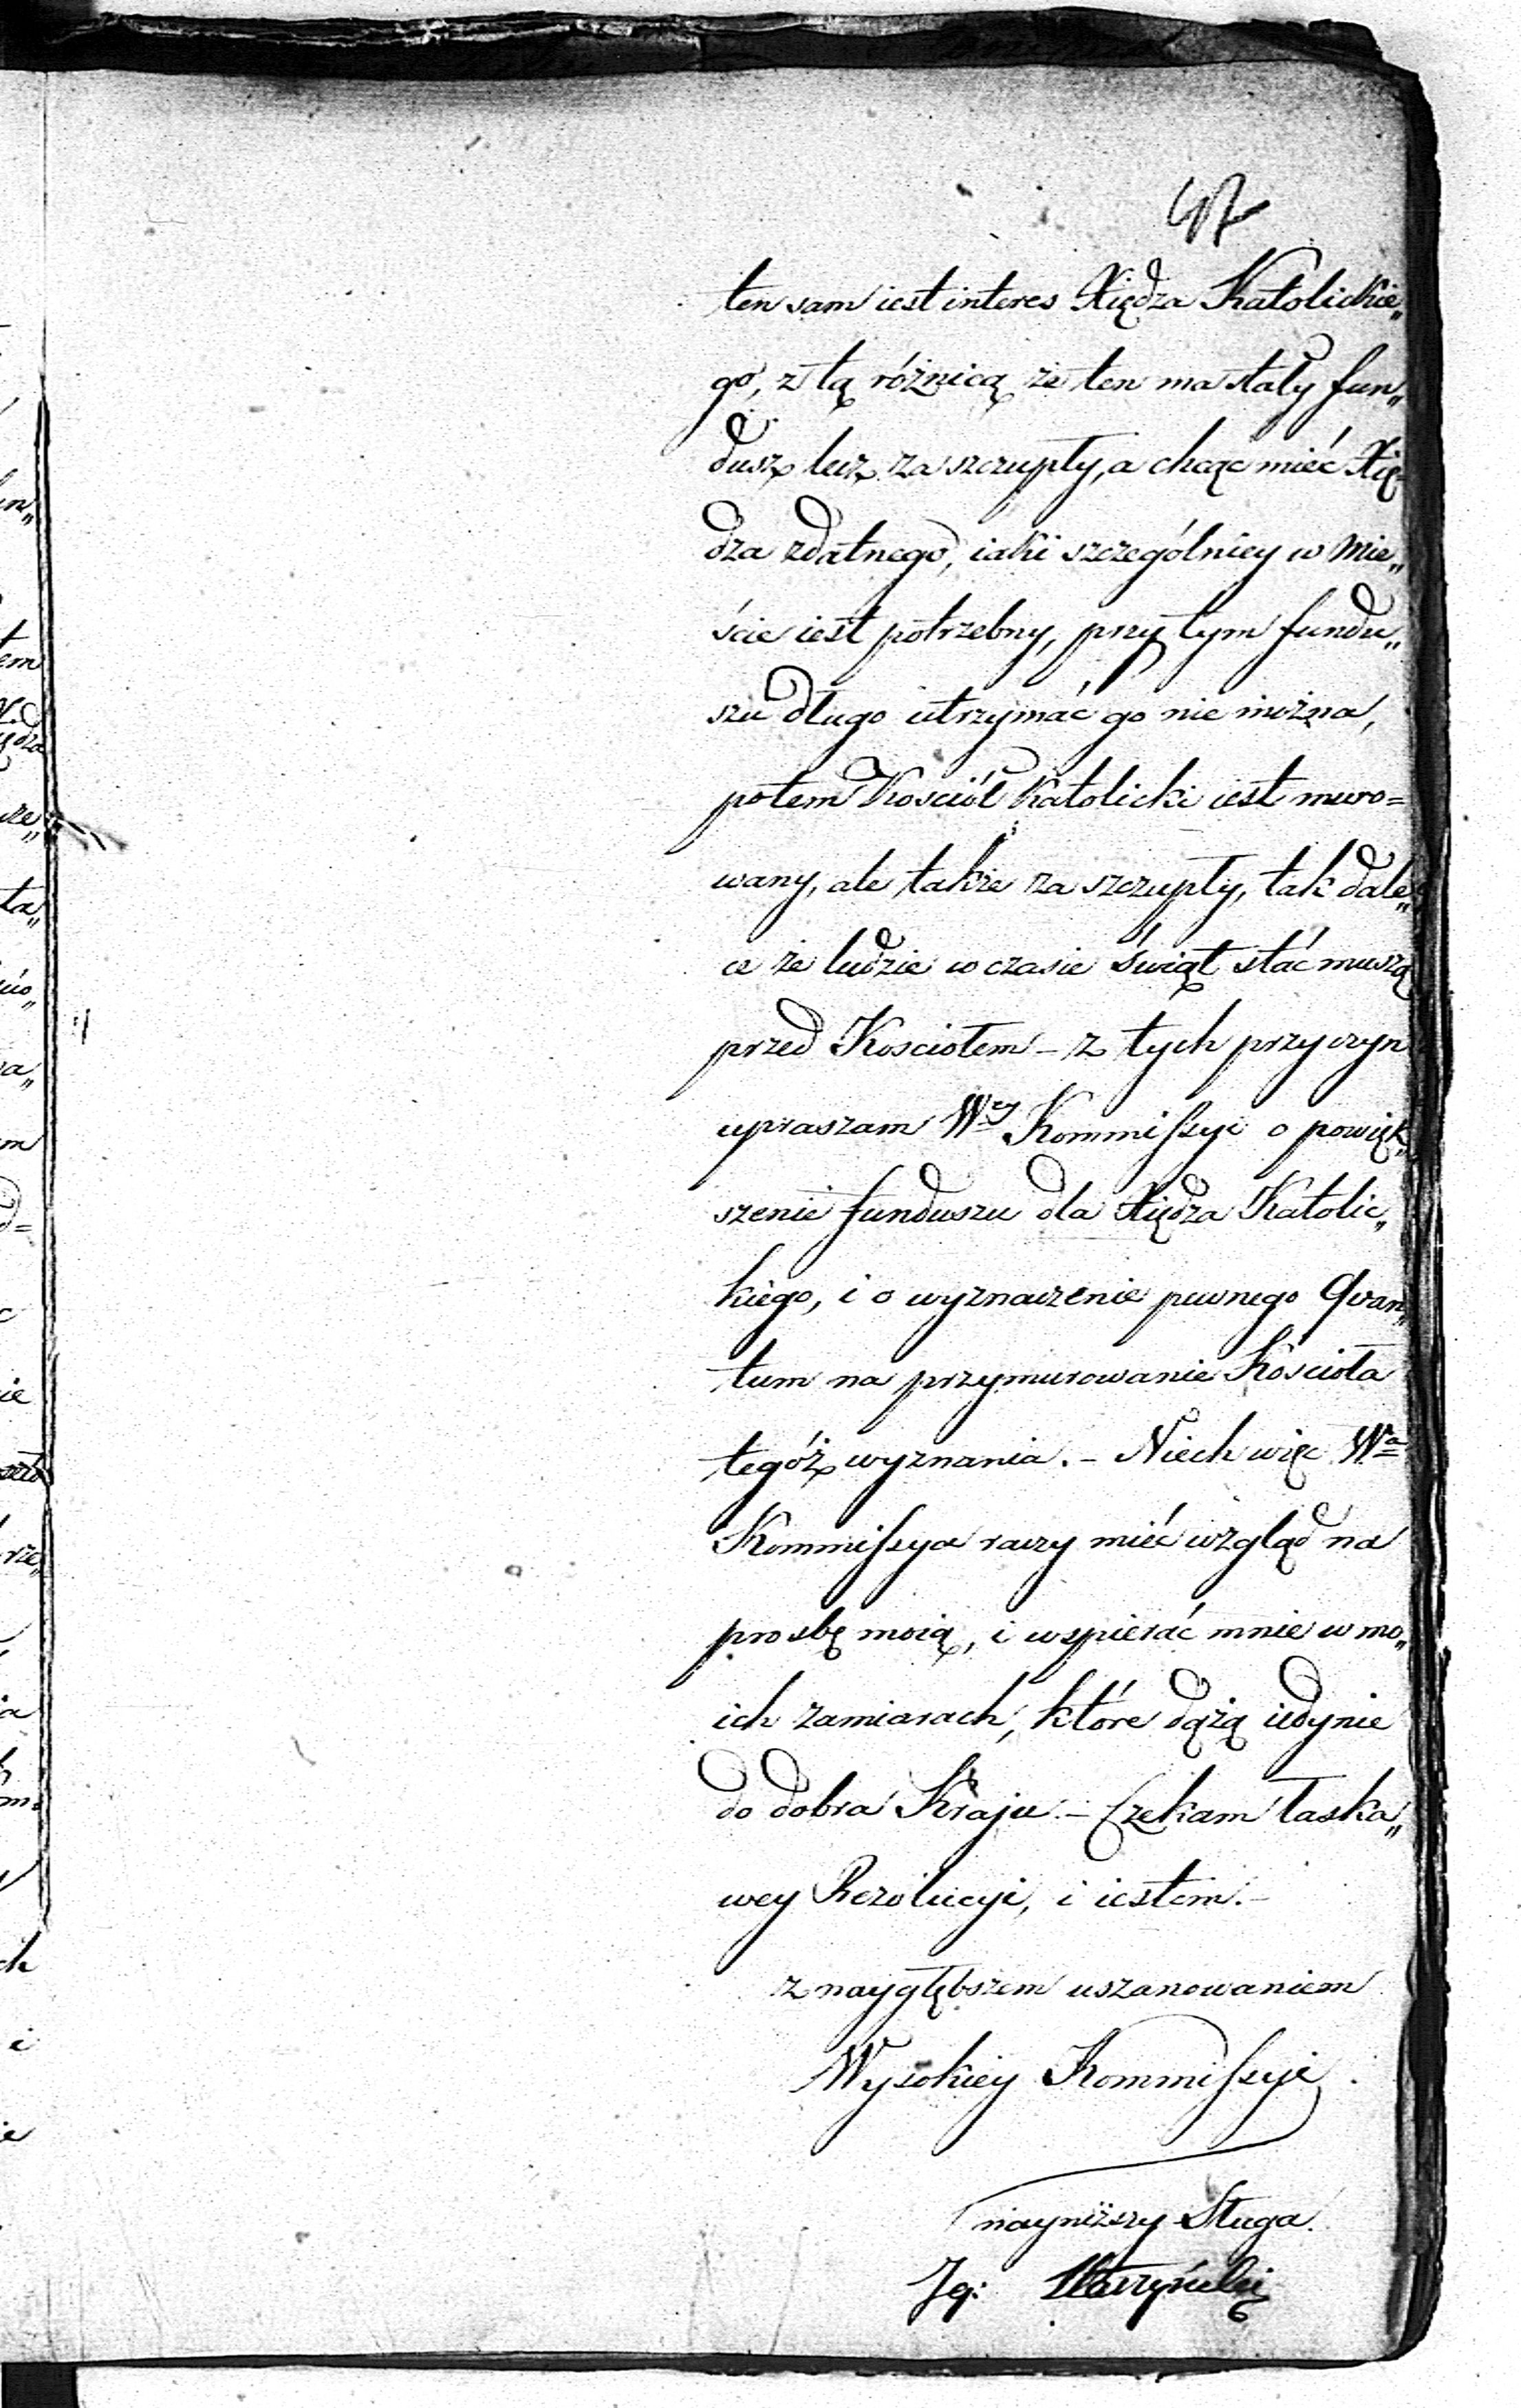 47
ten sam iest interes Xiędza Katolickie„
go, z tą różnicą że ten ma stały fun„
dusz lecz za szczupły, a chcąc mieć Xię„
dza zdatnego, iaki szczególniey w Mie„
ście iest potrzebny, przy tym fundu„
szu długo utrzymać go nie można,
potem Kosciół katolicki iest muro=
wany, ale także za szczupły, tak dale„
ce że ludzie w czasie świąt stać muszą
przed Kosciołem – z tych przyczyn
upraszam Wey Kommissyi o powięk„
szenie funduszu dla Xiędza Katolic„
kiego, i o wyznaczenie pewnego Qvan„
tum na przymurowanie Kościoła
tegóż wyznania. – Niech więc Wa
Kommissya raczy mieć wzgląd na
prosbę moią, i wspierać mnie w mo„
ich zamiarach, które dążą iedynie
do dobra Kraju. – Czekam łaska„
wey Rezolucyi, i iestem. –
z naygłębszem uszanowaniem
Wysokiey Kommissyi
nayniższy Sługa.
Ig: